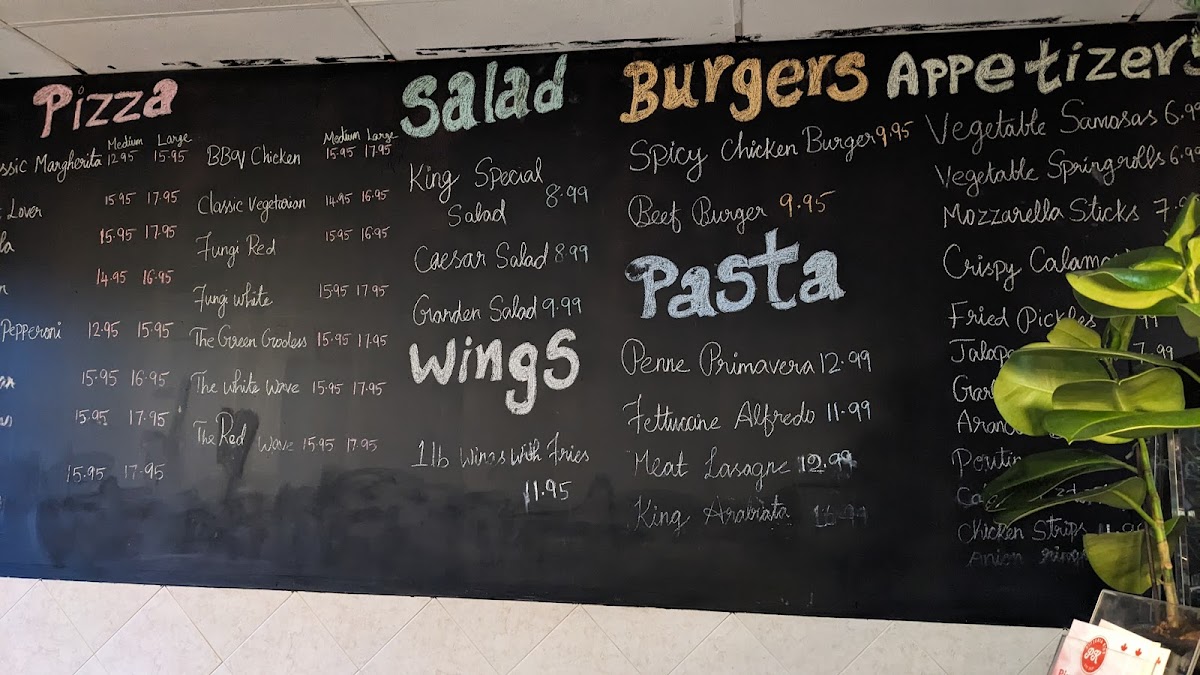 Pizza
Medium Large
ssic Margherita 12.95 15.95
Lover 15.95 17.95
la 15.95 17.95
14.95 16.95
Pepperoni 12.95 15.95
an 15.95 16.95
15.95 17.95
15.95 17.95
Medium Large
BBQ Chicken 15.95 17.95
Classic Vegetarian 14.95 16.95
Fungi Red 15.95 16.95
Fungi white 15.95 17.95
The Green Goolers 15.95 17.95
The white wave 15.95 17.95
The Red wave 15.95 17.95
Salad
King Special
Salad 8.99
Caesar Salad 8.99
Garden Salad 9.99
Wings
1lb wings with Fries
11.95
Burgers
Spicy Chicken Burger 9.95
Beef Burger 9.95
Pasta
Penne Primavera 12.99
Fettuccine Alfredo 11.99
Meat Lasagne 12.99
King Arabiata 16.99
Appetizers
Vegetable Samosas 6.9
Vegetable Springrolls 6.9
Mozzarella Sticks 7.9
Crispy Calama
Fried Pickles 99
Jalap 7.99
Gar
Aranc
Poutin
Chicken Strips 11.99
Onion rings